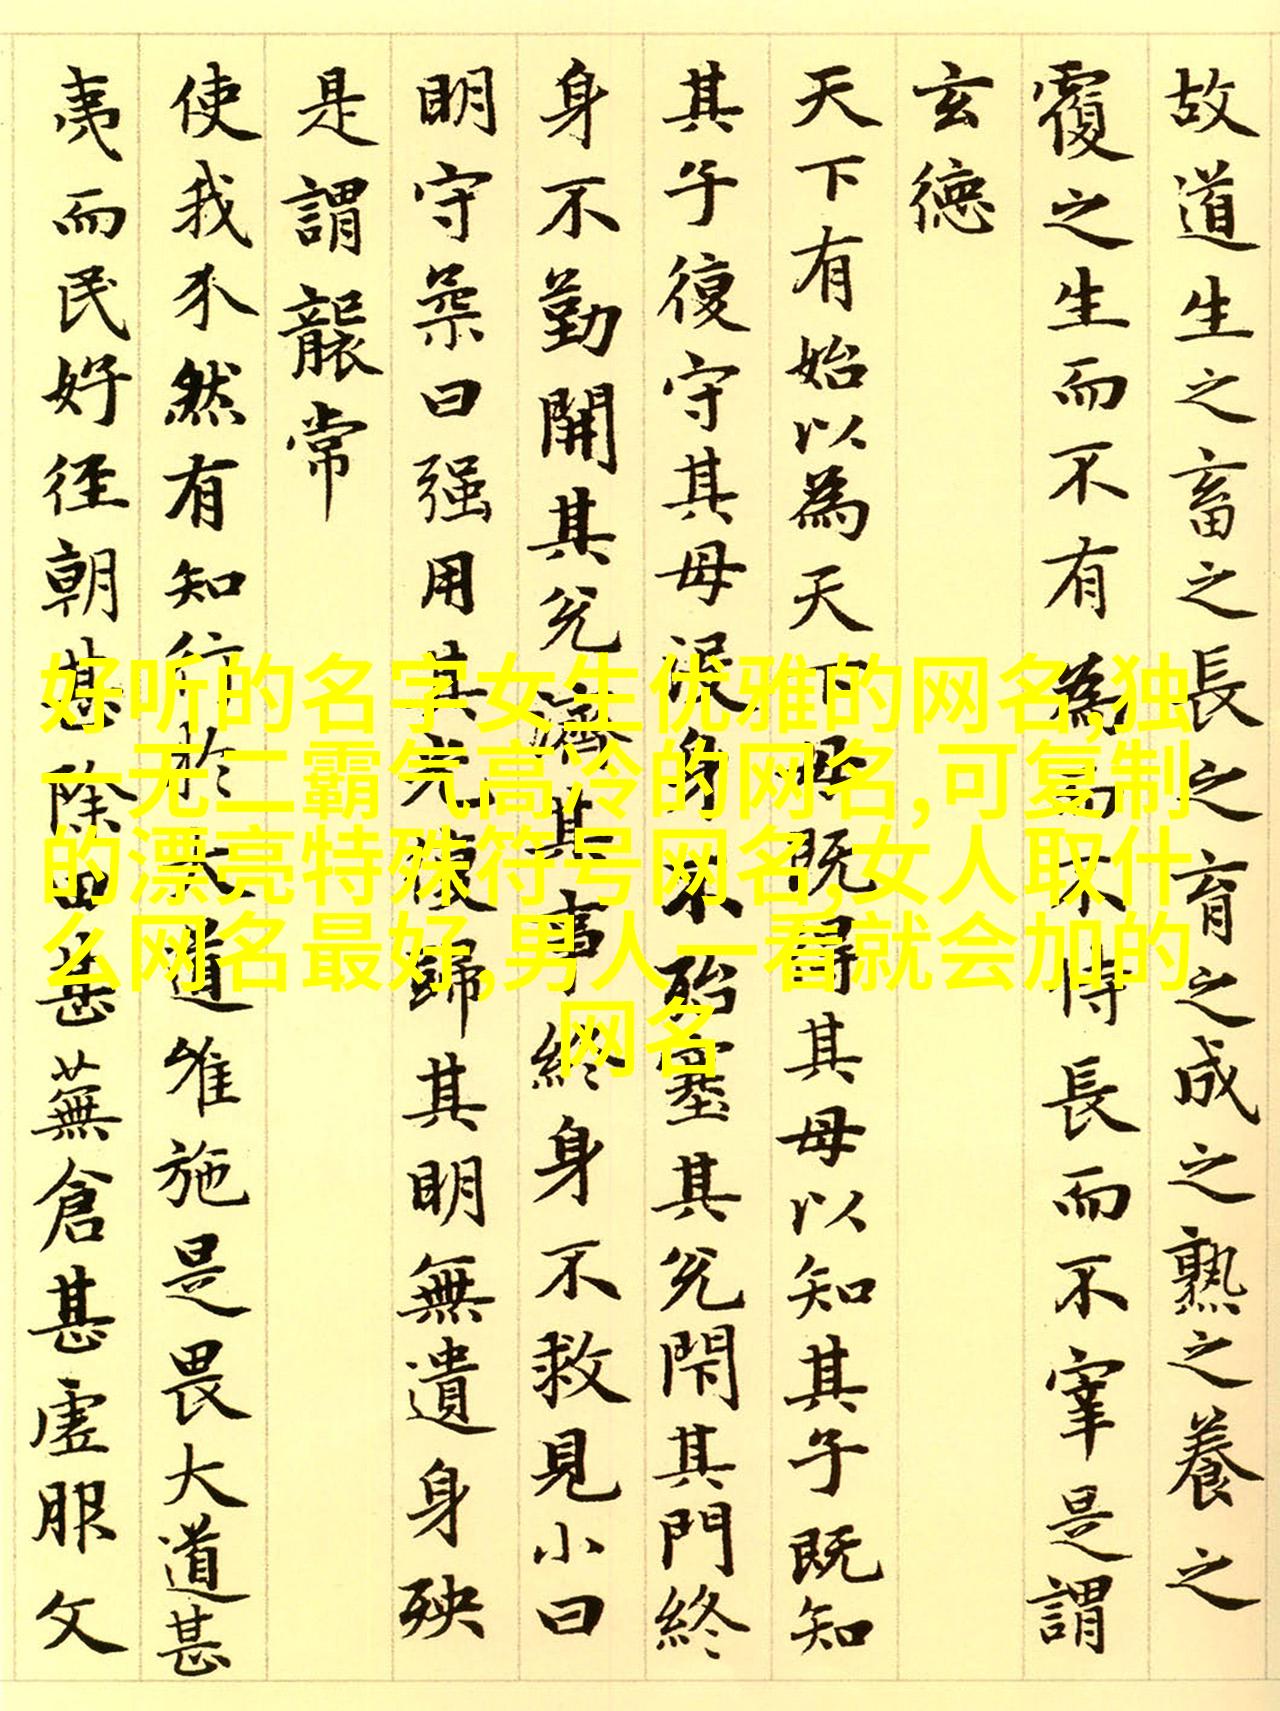 故道生之畜之長之育之成之熟之養之
覆之生而不有為而不恃長而不宰是謂
玄德
天下有始以為天下母既得其母以知其子既知
其子復守其母没身不殆塞其兊閇其門終
身不勤開其兊濟其事終身不救見小曰
明守柔曰强用其光復歸其明無遺身殃
是謂襲常
使我介然有知行於大道唯施是畏大道甚
夷而民好徑朝甚除田甚蕪倉甚虚服文
好听的名字女生优雅的网名,独
一无二霸气高冷的网名,可复制
的漂亮特殊符号网名,女人取什
么网名最好,男人一看就会加的
网名